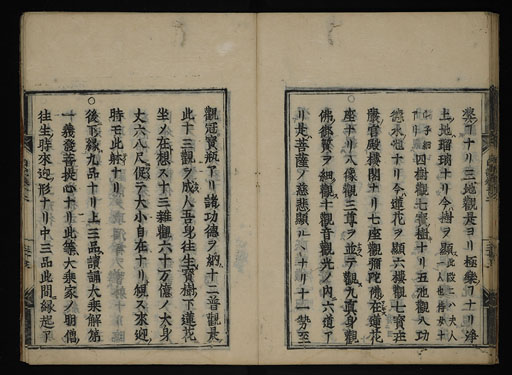 ナリ三地觀是ヨリ極樂ノナリ淨
土地瑠璃ナリ今樹ヲ顯
四樹觀七寶樹ナリ五池觀八功
德水池ナリ今蓮花ヲ顯六樓觀七寶莊
嚴宮殿樓閣ナリ七座觀彌陀在蓮花
座ナリ八像觀三尊ヲ並テ觀九眞身觀
佛ヲ細觀十觀音觀光ノ内六道ヲ
リ是菩薩ノ慈悲顯ルナリ十一勢至
觀冠寶瓶ナリ諸功德ヲ納十二普觀是
此十三觀ヲ成人吾身往生寶樹下蓮花
坐ノ在想ス十三雜觀六十万億ノ大身
丈六八尺促テ大小自在ナリ觀ス來迎
時モ此躰ナリ
○後下緣九品ナリ上三品讀誦大乘解第
一義發菩提心ナリ此等大乘家ノ朋僧
往生時來迎形ナリ中三品此間緣起ヲ